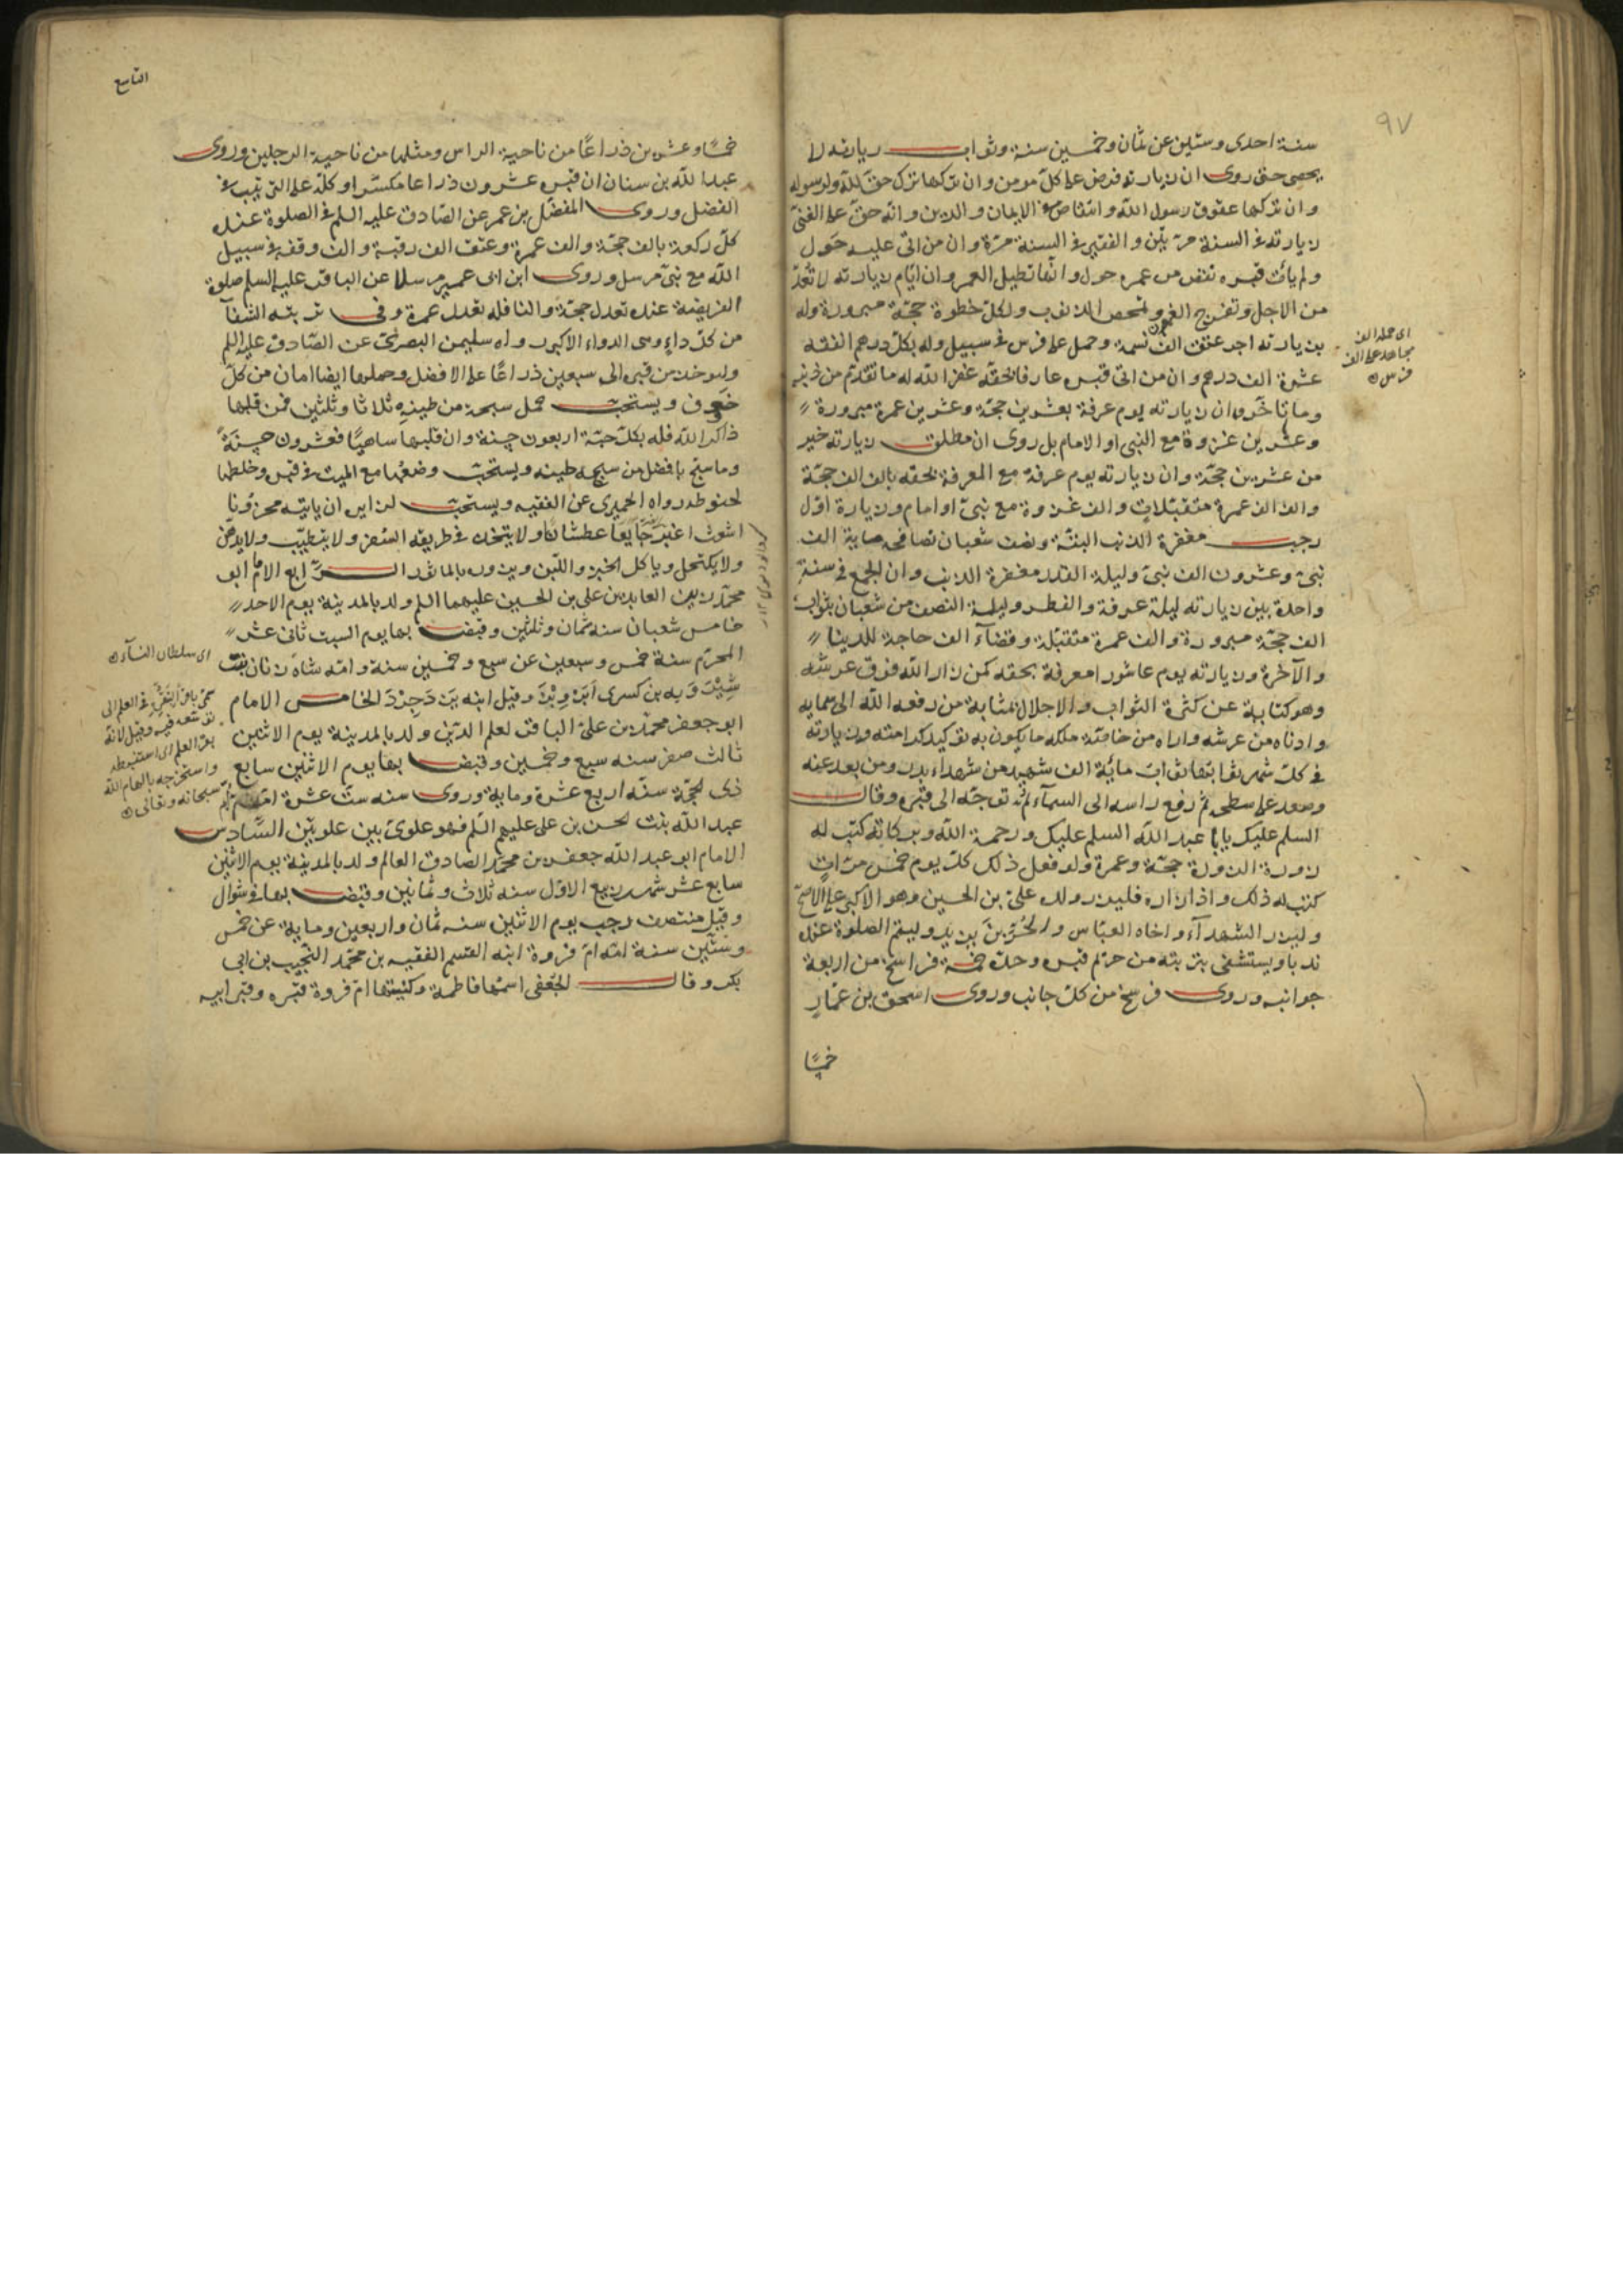 ٩٧
سنة احدى وستين عن ثمان وخمسين سنة وثواب زيارته لا
يحصى حتى روى ان زيارته فرض على كل مومن وان تركها ترك حق لله ولرسوله
وان تركها عقوق رسول الله وانتقاص في الايمان والدين وانه حق على الغنى
زيارته في السنة مرتين والفقير في السنة مرة وان من اتى عليه حول
ولم يأت قبره نقص من عمره حول وانها تطيل العمر وان ايام زيارته لا تعد
من الاجل وتفرج الغم وتمحص الذنوب ولكل خطوة حجة مبرورة وله
بزيارته اجر عتق الف نسمة وحمل على فرس في سبيل وله بكل درهم انفقه
عشرة الف درهم وان من اتى قبره عارفا بحقه غفر الله له ما تقدم من ذنبه
وما تاخر وان زيارته يوم عرفة بعشرين حجة وعشرين عمرة مبرورة
وعشرين غزوة مع النبى او الامام بل روى ان مطلق زيارته خير
من عشرين حجة وان زيارته يوم عرفة مع المعرفة بحقه بالف الف حجة
والف الف عمرة متقبلات والف غزوة مع نبى او امام وزيارة اول
رجب مغفرة الذنب البتة ونصف شعبان تصافحه ماية الف
نبى وعشرون الف نبى وليلة القدر مغفرة الذنب وان الجمع في سنة
واحدة بين زيارته ليلة عرفة والفطر وليلة النصف من شعبان بثواب
الف حجة مبرورة والف عمرة متقبلة وقضآء الف حاجة للدنيا
والآخرة وزيارته يوم عاشورا معرفة بحقه كمن زار الله فوق عرشه
وهو كناية عن كثرة الثواب والاجلال بمثابة من رفعه الله الى سمايه
وادناه من عرشه واراه من خاصة ملكه ما يكون به توكيد كرامته وزيارته
في كل شهر ثوابها ثواب مائة الف شهيد من شهداء بدر ومن بعد عنه
وصعد على سطحه ثم رفع راسه الى السمآء ثم توجه الى قبره وقال
السلم عليك يابا عبد الله السلم عليك ورحمة الله وبركاته كتب له
زورة الزورة حجة وعمرة ولو فعل ذلك كل يوم خمس مرات
كتب له ذلك واذا زاره فليزر ولده على بن الحسين وهو الاكبر على الاصح
وليزر الشهدآء واخاه العباس والحر بن يزيد وليتم الصلوة عنده
ندبا ويستشفى بتربته من حرم قبره وحده خمسة فراسخ من اربعة
جوانبه وروى فرسخ من كل جانب وروى اسحق بن عمار
خمسًا
اى حمله الف
مجاهد على الف
فرس
التاسع
خمسًا وعشرين ذراعًا من ناحية الراس ومثلها من ناحية الرجلين وروى
عبد الله بن سنان ان قبره عشرون ذراعا مكسرا وكله على الترتيب في
الفضل وروى المفضل بن عمر عن الصادق عليه السلم في الصلوة عنده
كل ركعة بالف حجة والف عمرة وعتق الف رقبة والف وقفه في سبيل
الله مع نبى مرسل وروى ابن ابى عمير مرسلا عن الباقر عليه السلم صلوة
الفريضة عنده تعدل حجة والنافله تعدل عمرة وفى تربته الشفآ
من كل داء وهى الدواء الاكبر رواه سليمن البصرى عن الصادق عليه السلم
وليوخذ من قبره الى سبعين ذراعًا على الافضل وحملها ايضا امان من كل
خوف ويستحب حمل سبحة من طينه ثلاثا وثلثين فمن قلبها
ذاكرا لله فله بكل حبة اربعون حسنة وان قلبها ساهيًا فعشرون حسنة
وما سبح بافضل من سبحه طينه ويستحب وضعها مع الميت في قبره وخلطها
لحنوطه رواه الحميرى عن الفقيه ويستحب لزايره ان ياتيه محزونا
اشعث اغبر جايعا عطشانا ولا يتخذ في طريقه السفر ولا يتطيب ولا يدهن
ولا يكتحل وياكل الخبز واللبن ويزوره بالماثور الرابع الامام ابو
محمد زين العابدين على بن الحسين عليهما السلم ولد بالمدينة يوم الاحد
خامس شعبان سنه ثمان وثلثين وقبض بها يوم السبت ثانى عشر
المحرم سنة خمس وسبعين عن سبع وخمسين سنة وامه شاه زنان بنت
شيرويه بن كسرى ابرويز وقيل ابنه يزدجرد الخامس الامام
ابو جعفر محمد بن على الباقر لعلم الدين ولد بالمدينة يوم الاثنين
ثالث صفر سنه سبع وخمسين وقبض بها يوم الاثنين سابع
ذى الحجة سنه اربع عشرة وماية وروى سنه ست عشرة امه ام
عبد الله بنت الحسن بن على عليهم السلم فهو علوى بين علويين السادس
الامام ابو عبد الله جعفر بن محمد الصادق العالم ولد بالمدينة يوم الاثنين
سابع عشر شهر ربيع الاول سنه ثلاث وثمانين وقبض بها في شوال
وقيل منتصف رجب يوم الاثنين سنه ثمان واربعين وماية عن خمس
وستين سنة امه ام فروة ابنه القسم الفقيه بن محمد النجيب بن ابى
بكر وقال الجعفى اسمها فاطمة وكنيتها ام فروة قبره وقبر ابيه
اى سلطان النسآء
سمى باقر لتبقره في العلم اى
توسعه فيه وقيل لانه
بقر العلم اى استنبطه
واستخرجه بالهام الله
سبحانه وتعالى